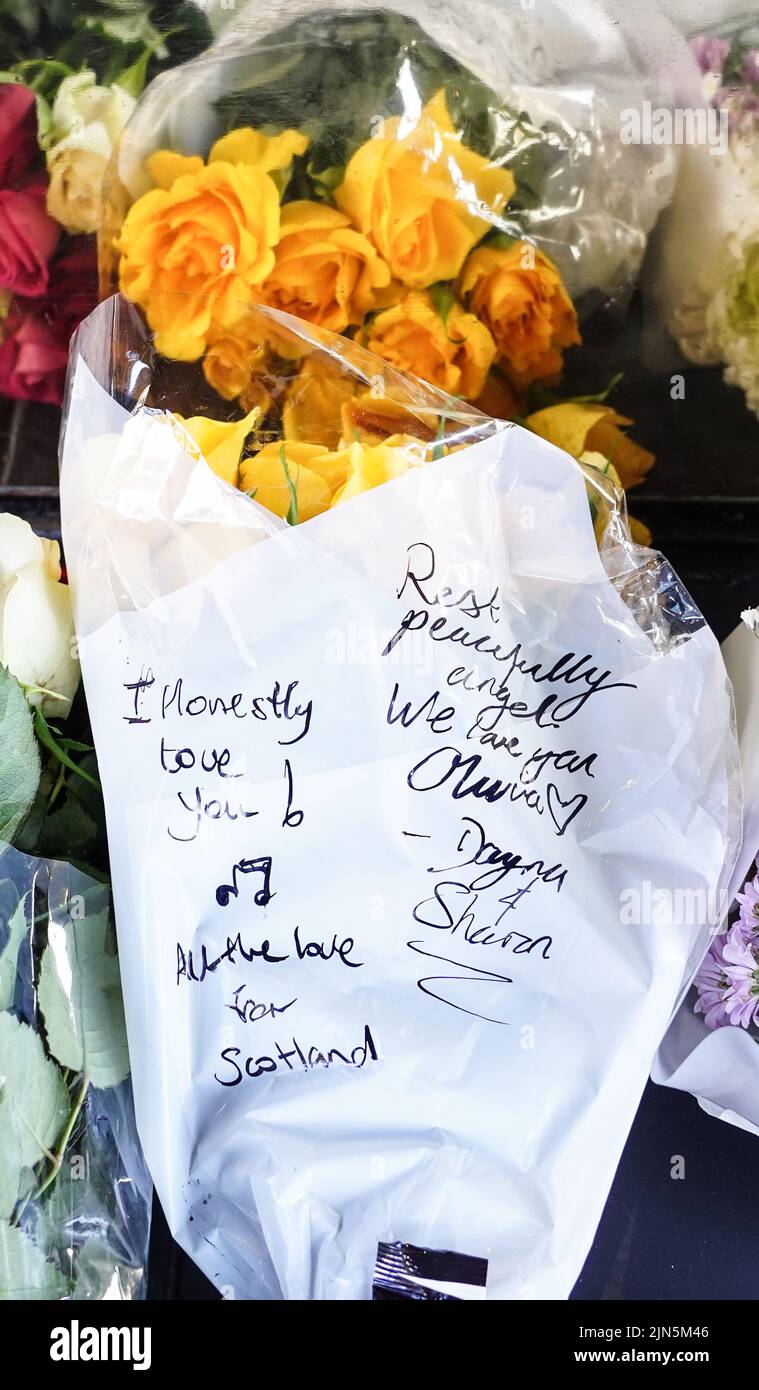 I Honestly
Love
You
All the love
from
Scotland
Rest
peacefully
angel.
We love you
Olivia
- Dayna
&
Sharon
alamy
alamy
alamy
Image ID: 2JN5M46
www.alamy.com